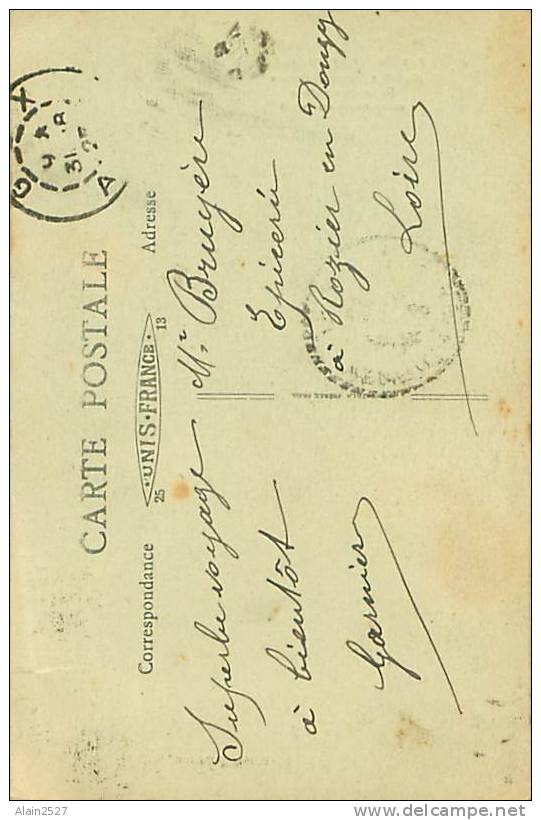 CARTE POSTALE
Correspondance
25
UNIS-FRANCE
13
Adresse
Superbe voyage
à bientôt
Garnier
Mr Bruyère
Epicerie
à Rozier en Donzy
Loire
Alain2527
www.delcampe.net